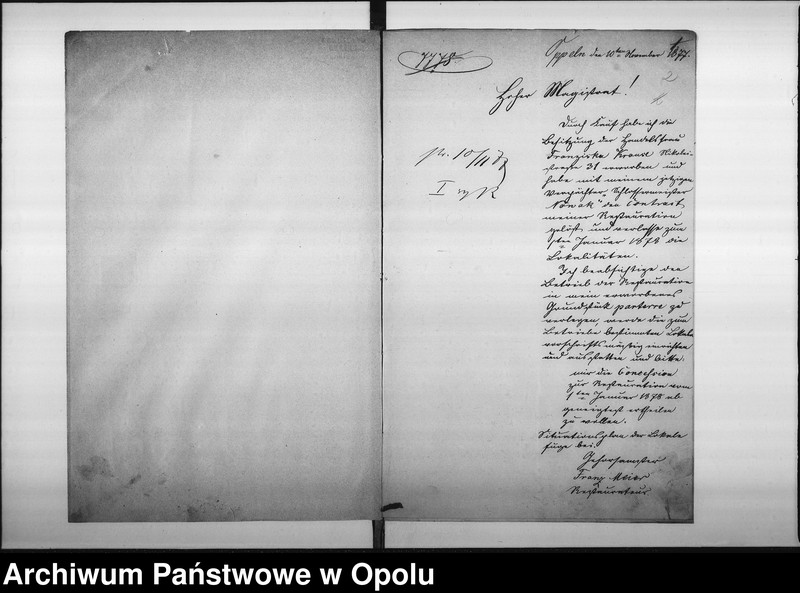 7778
Oppeln den 10ten November 1877.
2
Hoher Magistrat!
pr. 10/11 77
I
Durch Kauf habe ich die
Besitzung der Handelsfrau
Franziska Nikolai-
straße 31 erworben und
habe mit meinem jetzigen
Verpächter Schlossermeister
"Nowak" den Contract
meiner Restauration
gelöst und verlasse zum
1ten Januar 1878 die
Lokalitäten.
Ich beabsichtige den
Betrieb der Restauration
in mein erworbenes
Grundstück parterre zu
verlegen, werde die zum
Betriebe bestimmten Lokale
vorschriftsmäßig einrichten
und ausstatten und bitte:
mir die Concession
zur Restauration vom
1ten Januar 1878 ab
geneigtest ertheilen
zu wollen.
Situationsplan der Lokale
füge bei.
Gehorsamster
Franz Meier
Restaurateur.
Archiwum Państwowe w Opolu